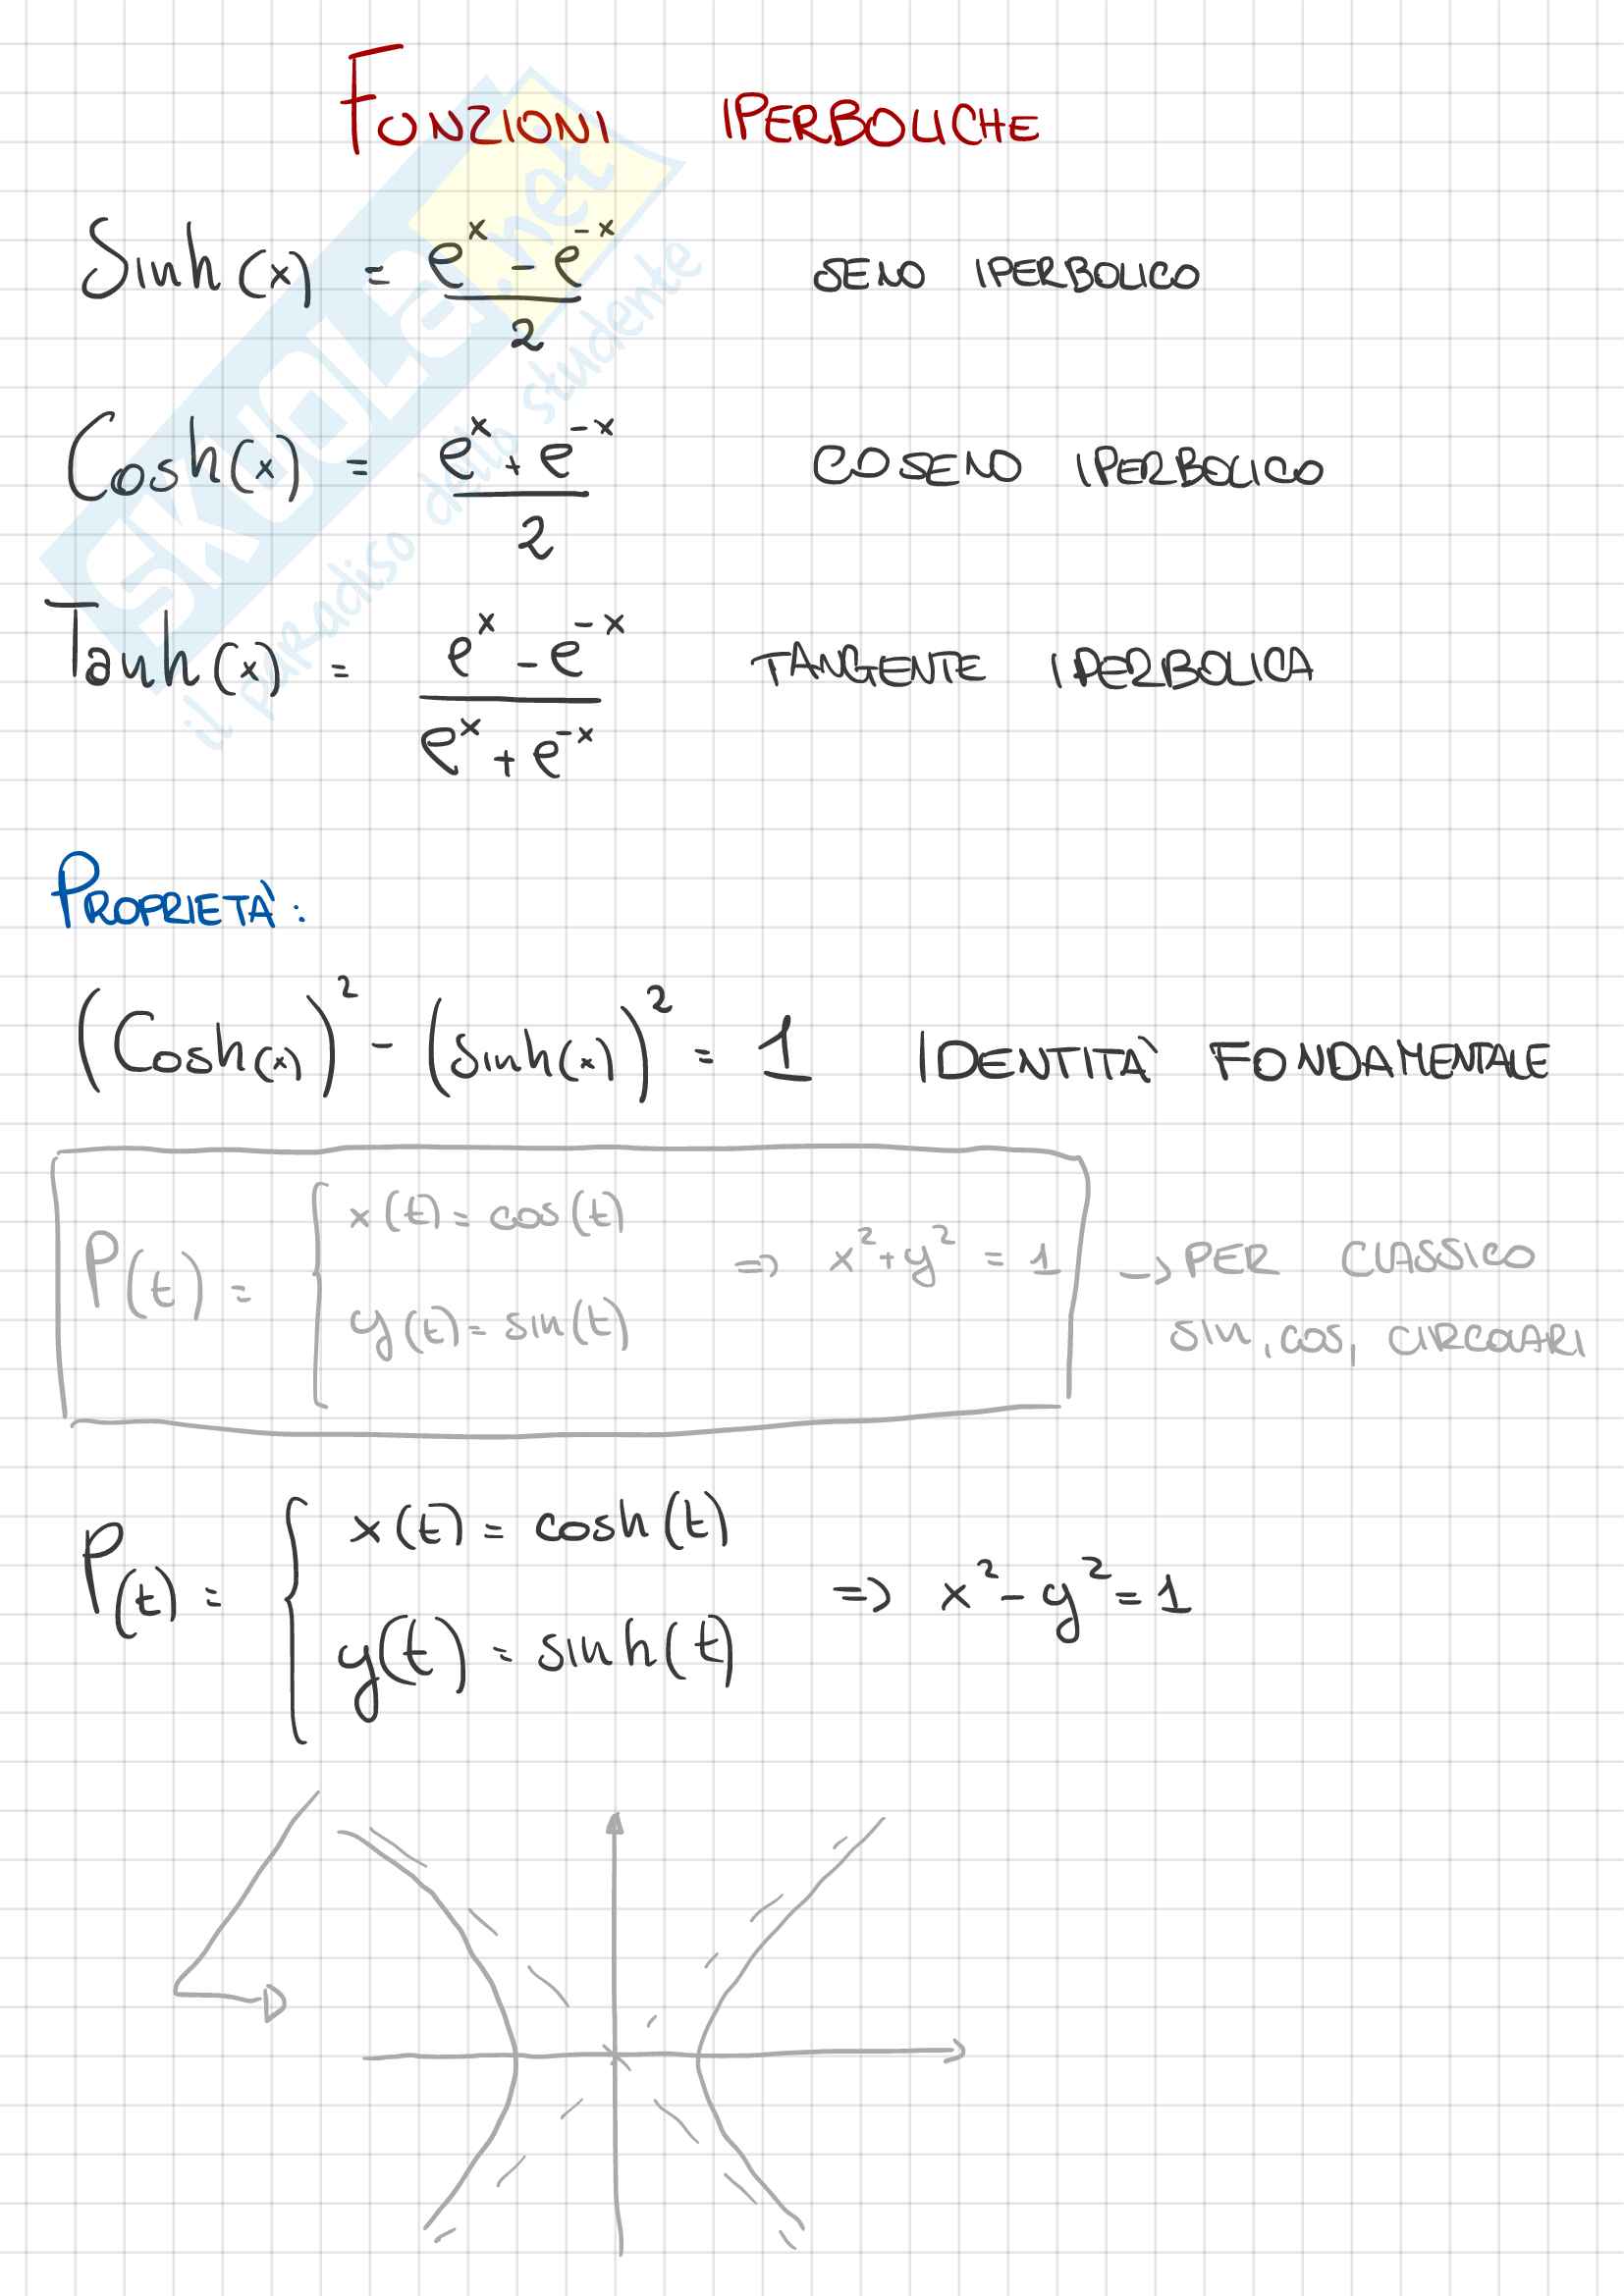 FUNZIONI IPERBOLICHE
Sinh(x) = (e^x - e^-x)/2 SENO IPERBOLICO
Cosh(x) = (e^x + e^-x)/2 COSENO IPERBOLICO
Tanh(x) = (e^x - e^-x)/(e^x + e^-x) TANGENTE IPERBOLICA
SKUOLA.net
il paradiso dello studente
PROPRIETÀ:
(Cosh(x))² - (sinh(x))² = 1 IDENTITÀ FONDAMENTALE
P(t) = { x(t) = cos(t)
y(t) = sin(t) => x² + y² = 1 → PER CLASSICO
sin, cos, CIRCOLARI
P(t) = { x(t) = cosh(t)
y(t) = sinh(t) => x² - y² = 1